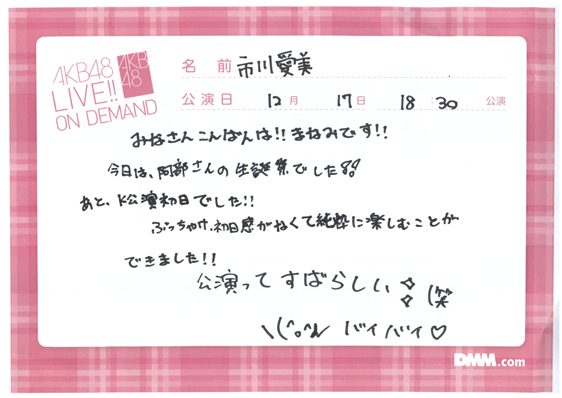 AKB48
LIVE!!
ON DEMAND
AKB
48
名 前 市川愛美
公演日 12月 17日 18:30 公演
みなさんこんばんは!!まなみです!!
今日は、阿部さんの生誕祭でした!!
あと、K公演初日でした!!
ぶっちゃけ、初日感がなくて純粋に楽しむことが
できました!!
公演ってすばらしい (笑
\(^o^)ノ バイバイ♡
DMM.com